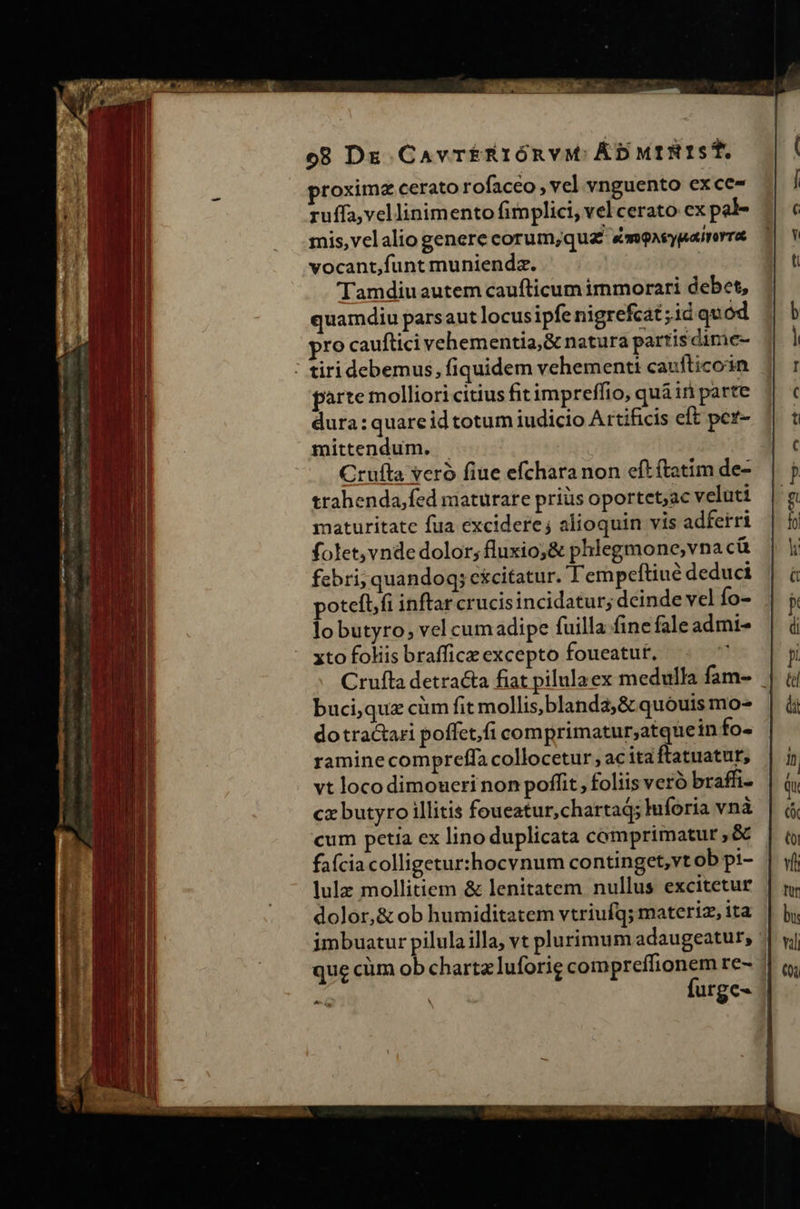 98 DE CAVTÉRIÓRVM ADMINIST.
proximæ cerato rosaceo, vel vnguento ex ce-
ruſſa, vel linimento ſimplici, vel cerato ex pal-
mis, vel alio genere eorum, quæ ἀποφλεγμαίνοντα
vocant, ſunt muniendæ.
Tamdiu autem cauſticum immorari debet,
quamdiu pars aut locus ipſe nigreſcat; id quód
pro cauſtici vehementia, & natura partis dime-
tiri debemus, ſiquidem vehementi cauſtico in
parte molliori citius fit impreſſio, quã in parte
dura: quare id totum iudicio Artificis eſt per-
mittendum.
Cruſta verò ſiue eſchara non eſt ſtatim de-
trahenda, ſed maturare priùs oportet, ac veluti
maturitate ſua excidere; alioquin vis adferri
ſolet, vnde dolor, fluxio, & phlegmone, vna cũ
febri, quandoq; excitatur. Tempeſtiuè deduci
poteſt, ſi inſtar crucis incidatur; deinde vel ſo-
lo butyro, vel cum adipe ſuilla ſine ſale admi-
xto foliis braſſicæ excepto foueatur.
Cruſta detracta fiat pilula ex medulla ſam-
buci, quæ cùm ſit mollis, blanda, & quóuis mo-
do tractari poſſet, ſi comprimatur, atque in fo-
ramine compreſſa collocetur, ac ita ſtatuatur,
vt loco dimoueri non poſſit, foliis verò braſſi-
cæ butyro illitis foueatur, chartaq́; luſoria vnà
cum petia ex lino duplicata comprimatur, &
faſcia colligetur: hoc vnum continget, vt ob pi-
lulæ mollitiem & lenitatem nullus excitetur
dolor, & ob humiditatem vtriuſq; materiæ, ita
imbuatur pilula illa, vt plurimum adaugeatur,
quę cùm ob chartæ luſorię compreſſionem re-
ſurge-